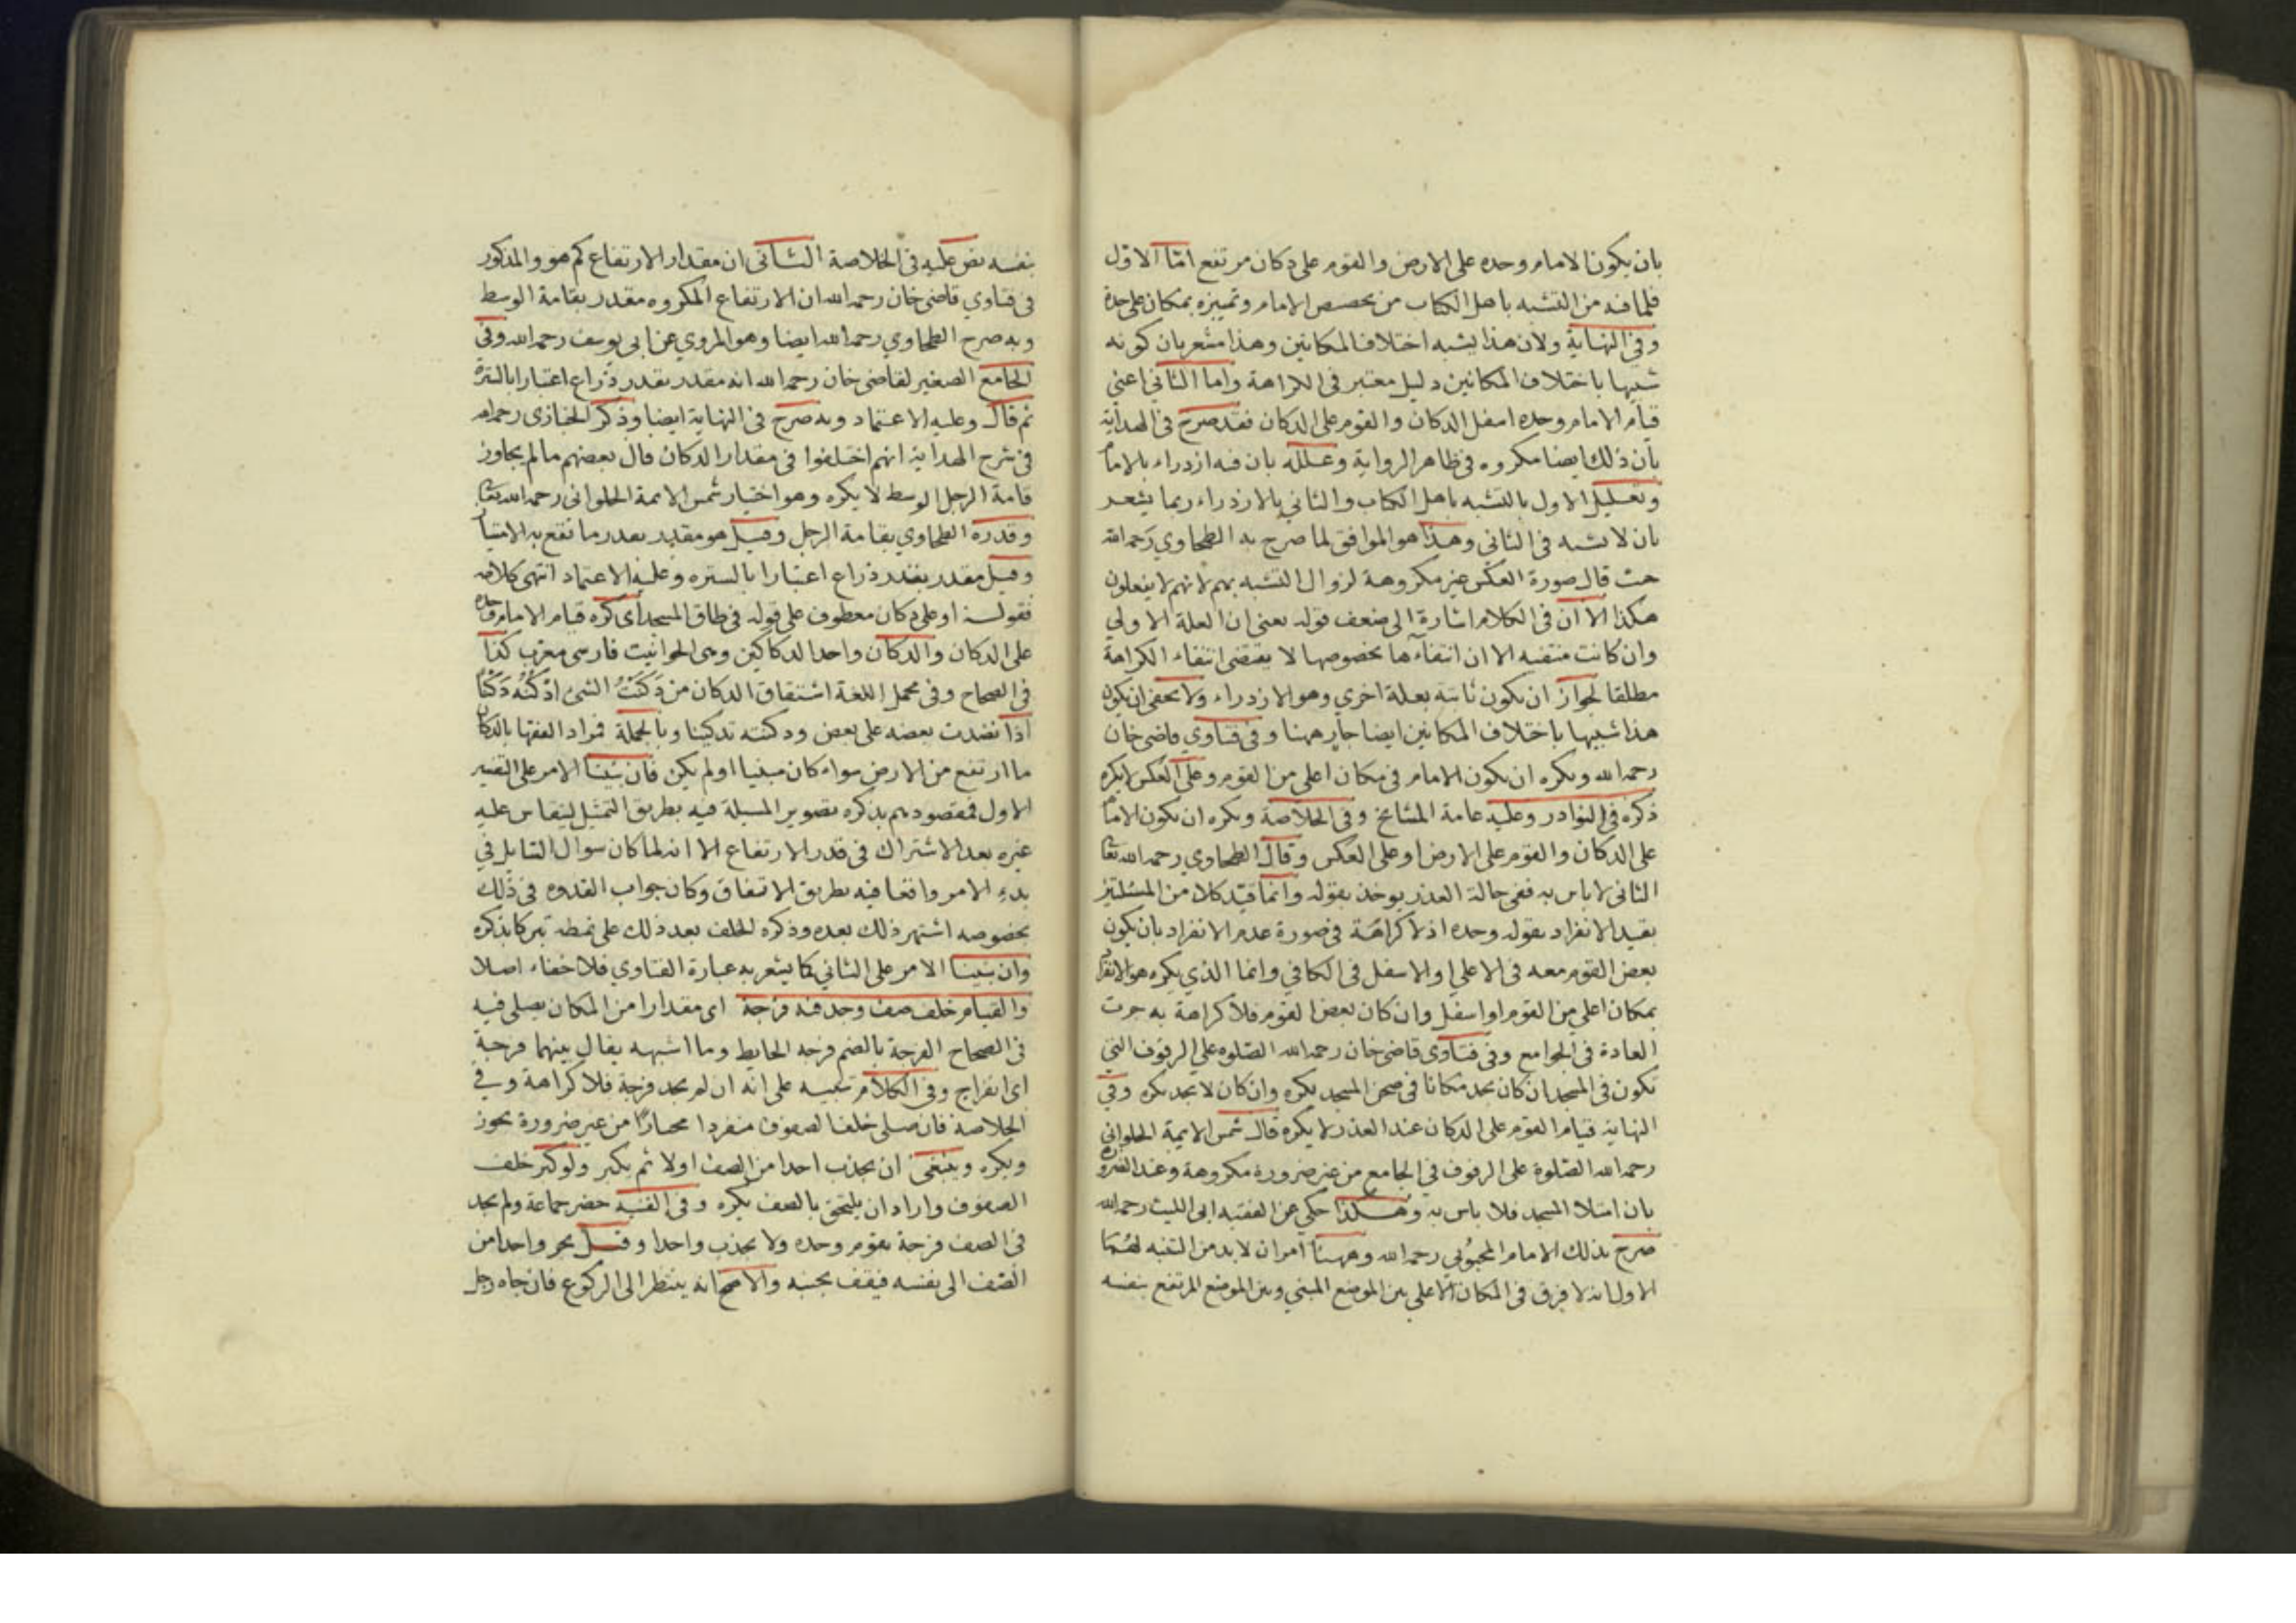 بان يكون الامام وحده على الارض والقوم على دكان مرتفع اما الاول
فلما فيه من التشبه باهل الكتاب من تخصص الامام وتميزه بمكان على حدة
وفي النهاية ولان هذا يشبه اختلاف المكانين وهذا مشعر بان كونه
شبيها باختلاف المكانين دليل معتبر في الكراهة واما الثاني اعني
قيام الامام وحده اسفل الدكان والقوم على الدكان فقد صرح في الهداية
بان ذلك ايضا مكروه في ظاهر الرواية وعلله بان فيه ازدراء بالامام
وتعليل الاول بالتشبه باهل الكتاب والثاني بالازدراء ربما يشعر
بان لا تشبه في الثاني وهذا هو الموافق لما صرح به الطحاوي رحمه الله
حيث قال صورة العكس غير مكروهة لزوال التشبه بهم لانهم لا يفعلون
هكذا الا ان في الكلام اشارة الى ضعف قوله يعني ان العلة الاولي
وان كانت منتفيه الا ان انتفآءها بخصوصها لا يقتضي انتفاء الكراهة
مطلقا لجواز ان تكون ثابتة بعلة اخري وهو الازدراء ولا يخفى ان يكون
هذا شبيها باختلاف المكانين ايضا جار ههنا وفي فتاوي قاضي خان
رحمه الله ويكره ان يكون الامام في مكان اعلى من القوم وعلى العكس لا يكره
ذكره في النوادر وعليه عامة المشايخ وفي الخلاصة ويكره ان يكون الامام
على الدكان والقوم على الارض او على العكس وقال الطحاوي رحمه الله تعا
الثاني لا باس به ففي حالة العذر يوخذ بقوله وانما قيد كلا من المسئلتين
بقيد الانفراد بقوله وحده اذ لا كراهة في صورة عدم الانفراد بان يكون
بعض القوم معه في الاعلي او الاسفل في الكافي وانما الذي يكره هو الانفراد
بمكان اعلي من القوم او اسفل وان كان بعض القوم فلا كراهة به جرت
العادة في الجوامع وفي فتاوى قاضي خان رحمه الله الصلوه على الرفوف التي
تكون في المسجد ان كان يجد مكانا في صحن المسجد يكره وان كان لا يجد يكره وفي
النهاية قيام القوم على الدكان عند العذر لا يكره قال شمس الايمة الحلواني
رحمه الله الصلوة على الرفوف في الجامع من غير ضرورة مكروهة وعند الضرورة
بان امتلا المسجد فلا باس به وهكذا حكي عن الفقيه ابي الليث رحمه الله
صرح بذلك الامام المحبوبي رحمه الله وههنا امران لا بد من التنبه لهما
الاول انه لا فرق في المكان الاعلي بين الموضع المبني وبين الموضع المرتفع بنفسه
بنفسه نص عليه في الخلاصة الثاني ان مقدار الارتفاع كم هو والمذكور
في فتاوي قاضي خان رحمه الله ان الارتفاع المكروه مقدر بقامة الوسط
وبه صرح الطحاوي رحمه الله ايضا وهو المروي عن ابي يوسف رحمه الله وفي
الجامع الصغير لقاضي خان رحمه الله انه مقدر بقدر ذراع اعتبارا بالسترة
ثم قال وعليه الاعتماد وبه صرح في النهاية ايضا وذكر الخبازى رحمه الله
في شرح الهداية انهم اختلفوا في مقدار الدكان قال بعضهم مالم يجاوز
قامة الرجل الوسط لا يكره وهو اختيار شمس الايمة الحلواني رحمه الله تعا
وقدره الطحاوي بقامة الرجل وقيل هو مقدر بقدر ما تقع به الامتياز
وقيل مقدر بقدر ذراع اعتبارا بالستره وعليه الاعتماد انتهى كلامه
فقوله او على دكان معطوف على قوله في طاق المسجد اى كره قيام الامام وحده
على الدكان والدكان واحد الدكاكين وهي الحوانيت فارسي معرب كذا
في الصحاح وفي مجمل اللغة اشتقاق الدكان من دَكَنْتُ الشئ اَدْكُنُه دَكْنًا
اذا نضدت بعضه على بعض ودكنته تدكينا وبالجملة فمراد الفقها بالدكان
ما ارتفع من الارض سواء كان مبنيا او لم يكن فان بنينا الامر على التفسير
الاول فمقصودهم بذكره تصوير المسئلة فيه بطريق التمثيل ليقاس عليه
غيره بعد الاشتراك في قدر الارتفاع الا انه لما كان سوال السايل في
بدء الامر واقعا فيه بطريق الاتفاق وكان جواب القدوه في ذلك
بخصوصه اشتهر ذلك بعده وذكره الخلف بعد ذلك على نمطه تبركا بذكره
وان بنينا الامر على الثاني كما يشعر به عبارة الفتاوي فلا خفاء اصلا
والقيام خلف صف وجد فيه فرجة اى مقدارا من المكان يصلى فيه
في الصحاح الفرجة بالضم فرجه الحايط وما اشبهه يقال بينهما فرجة
اى انفراج وفي الكلام تنبيه على انه ان لم يجد فرجة فلا كراهة وفي
الخلاصة فان صلى خلف الصفوف منفردا مختارًا من غير ضرورة يجوز
ويكره وينبغى ان يجذب احدا من الصف اولا ثم يكبر ولو كبر خلف
الصفوف واراد ان يلتحق بالصف يكره وفي القنيه حضر جماعة ولم يجد
في الصف فرجة يقوم وحده ولا يجذب واحدا وقيل يجر واحدا من
الصف الى نفسه فيقف بجنبه والاصح انه ينتظر الى الركوع فان جاه رجل